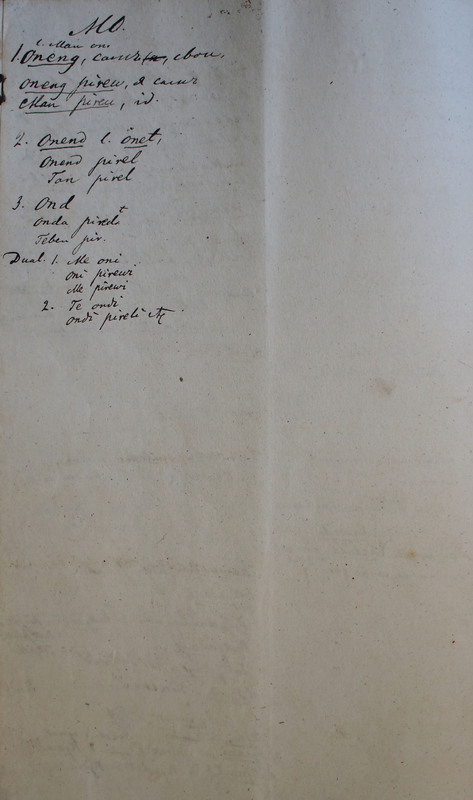 MO.
l. Man on.
1. Oneng,
oneng pireu, d
Man pireu, id.
2. Onend l. önet,
Onend pirel
Tan pirel
3. Ond
onda piredt
Teben pir.
Dual. 1. Me oni
oni pirewi
Me pirewi
2. Te ondi
ondi pireli